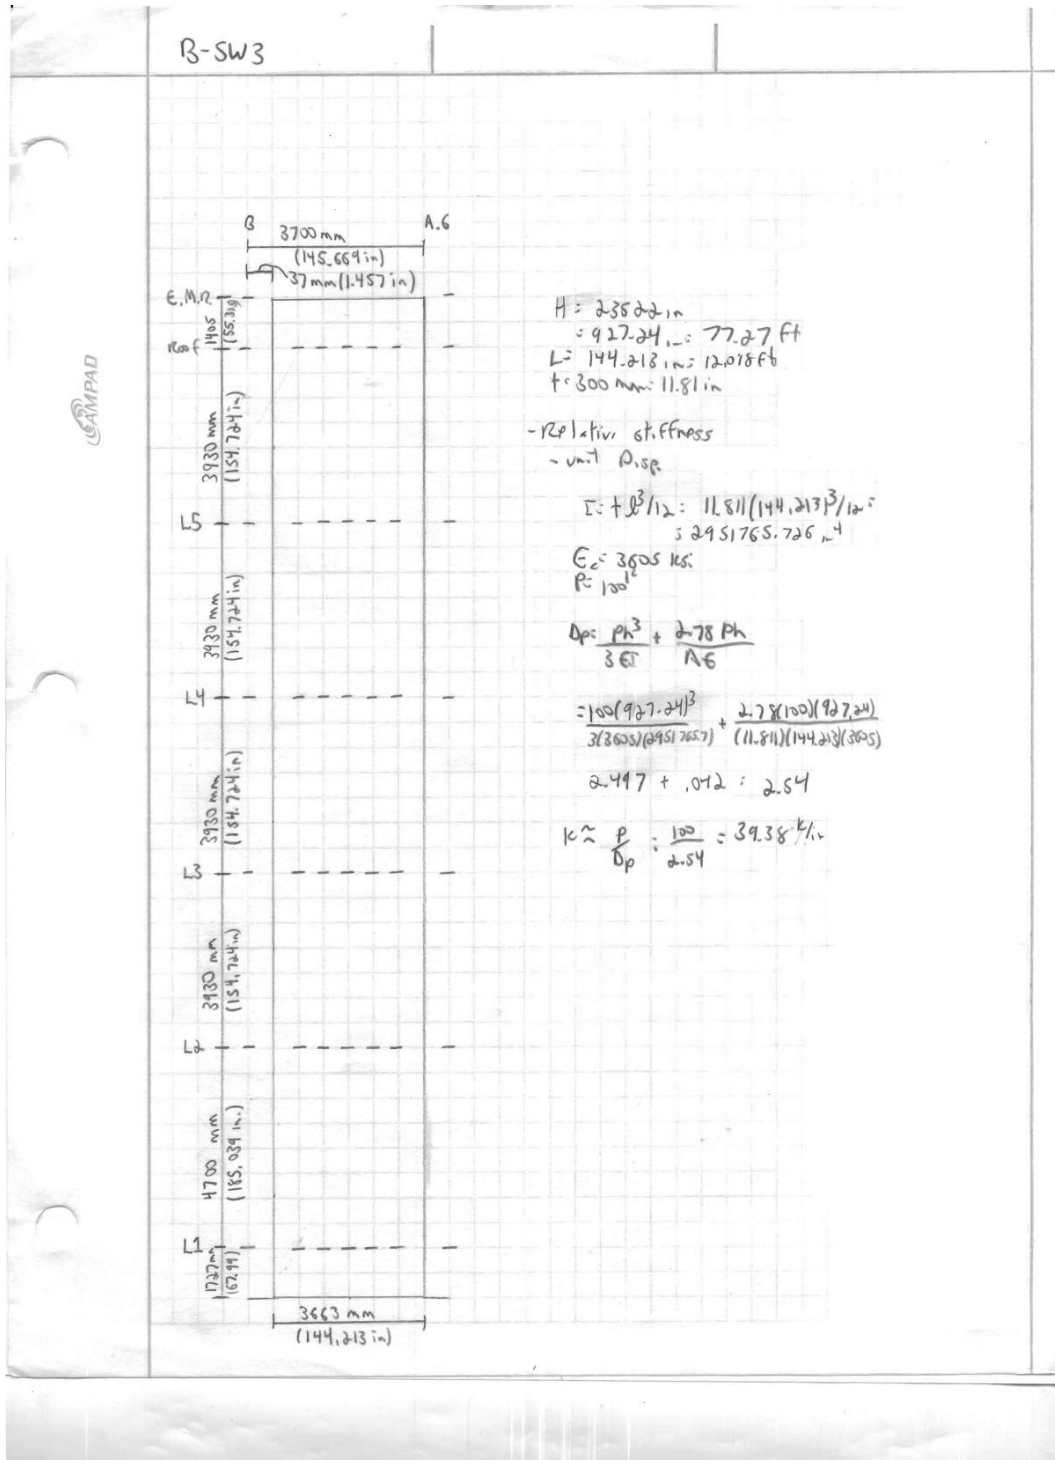 B-SW3
AMPAD
B
A.6
3700 mm
(145.669 in)
37 mm (1.457 in)
E.M.R
1405
(55.319
Roof
3930 mm
(154.724 in)
L5
3930 mm
(154.724 in)
L4
3930 mm
(154.724 in)
L3
3930 mm
(154.724 in)
L2
4700 mm
(185.039 in.)
L1
1727 mm
(67.99)
3663 mm
(144.213 in)
H = 23522 in
= 927.24 in = 77.27 ft
L = 144.213 in = 12.018 ft
t = 300 mm = 11.81 in
- Relative stiffness
- unit Disp.
I = tl³/12 = 11.811(144.213)³/12 =
= 2951765.726 in⁴
Ec = 3605 ksi
P = 100k
Dp = Ph³/3EI + 2.78 Ph/AE
= 100(927.24)³/3(3605)(2951765.7) + 2.78(100)(927.24)/(11.811)(144.213)(3605)
2.497 + .042 = 2.54
k ≈ P/Dp = 100/2.54 = 39.38 k/in